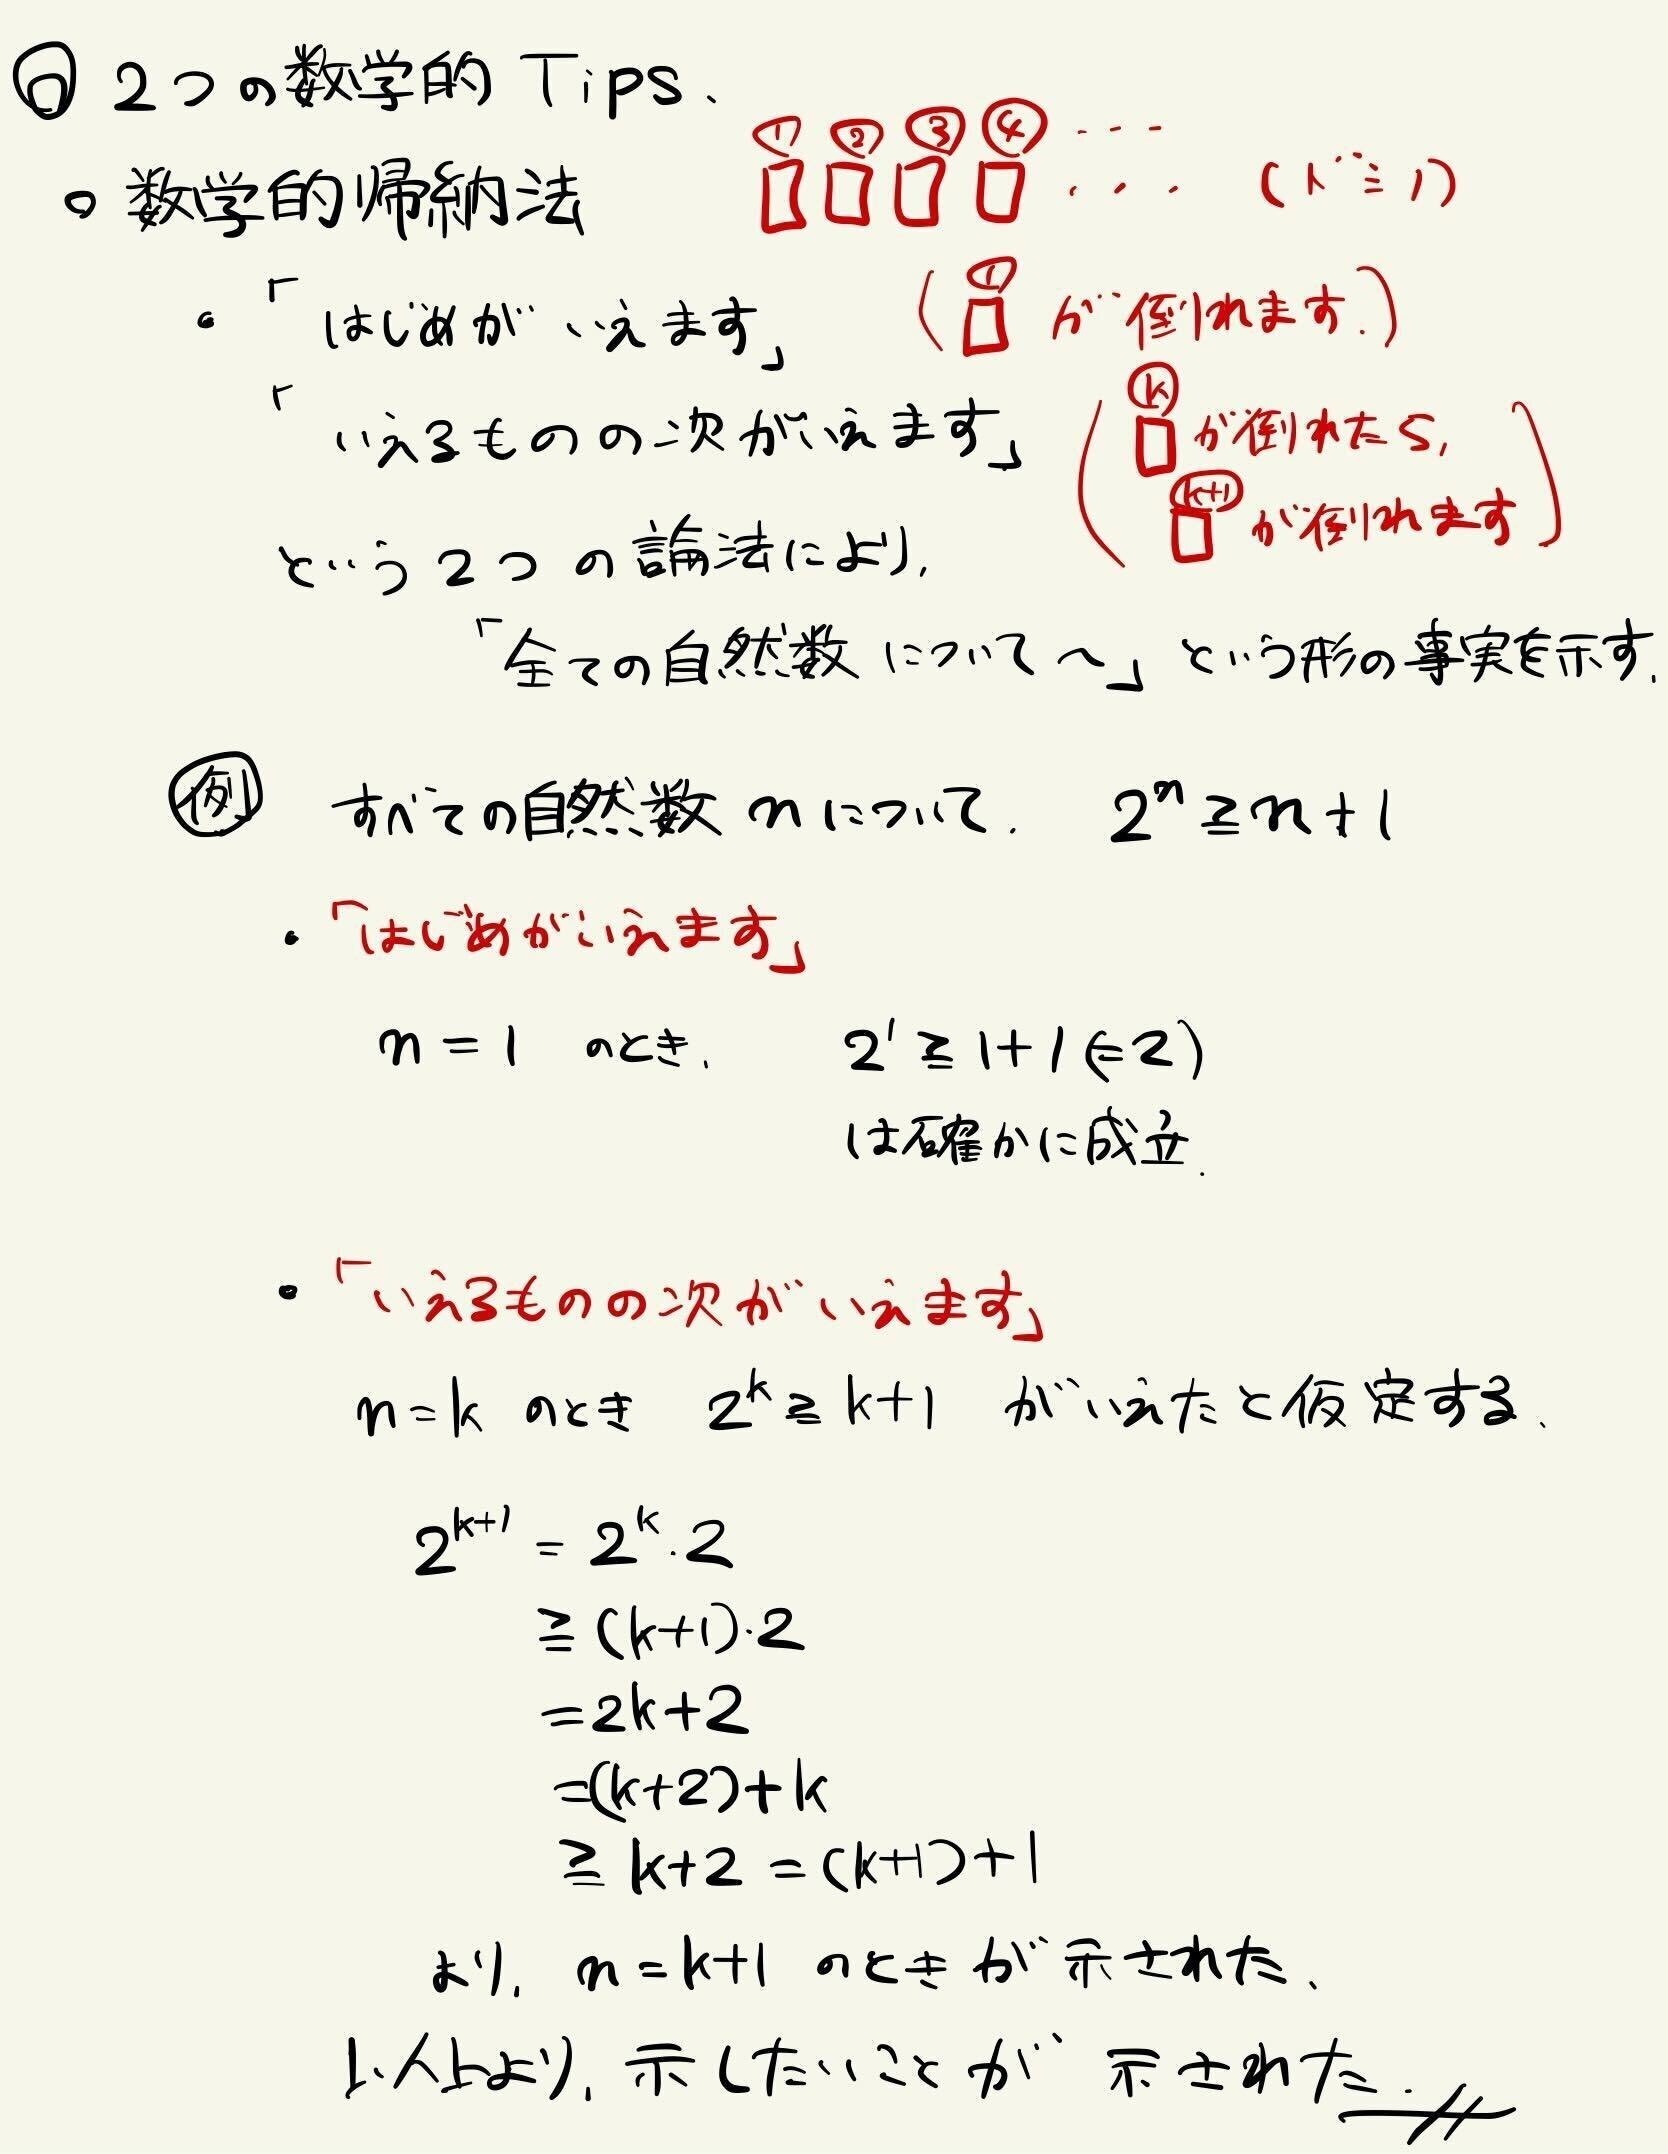 ◎ 2つの数学的 Tips.
① ② ③ ④ ・・・
・・・ (ドミノ)
○ 数学的帰納法
・「はじめがいえます」 (① が倒れます.)
「いえるものの次がいえます」 (ⓚ が倒れたら,
k+1 が倒れます)
という2つの論法により,
「全ての自然数について〜」という形の事実を示す.
例 すべての自然数 n について. 2ⁿ ≧ n+1
・「はじめがいえます」
n = 1 のとき, 2¹ ≧ 1+1 (=2)
は確かに成立.
・「いえるものの次がいえます」
n=k のとき 2ᵏ ≧ k+1 がいえたと仮定する.
2ᵏ⁺¹ = 2ᵏ・2
≧ (k+1)・2
= 2k+2
= (k+2)+k
≧ k+2 = (k+1)+1
より, n=k+1 のときが示された.
以上より, 示したいことが示された.